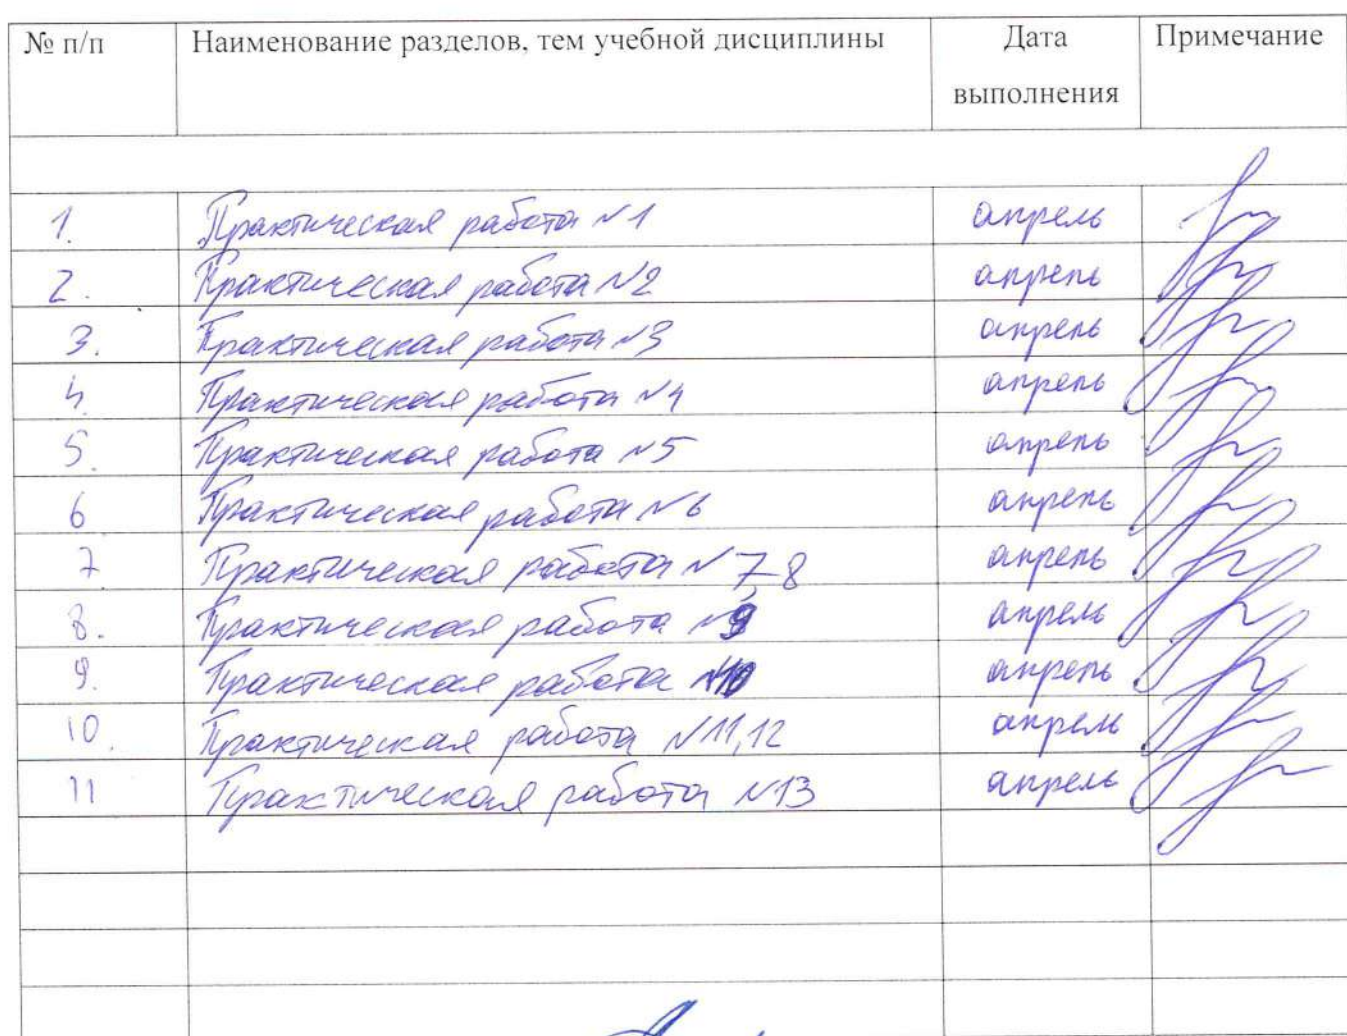 № п/п Наименование разделов, тем учебной дисциплины Дата выполнения Примечание
1. Практическая работа №1 апрель
2. Практическая работа №2 апрель
3. Практическая работа №3 апрель
4. Практическая работа №4 апрель
5. Практическая работа №5 апрель
6 Практическая работа №6 апрель
7 Практическая работа №7-8 апрель
8. Практическая работа №9 апрель
9. Практическая работа №10 апрель
10. Практическая работа №11,12 апрель
11 Практическая работа №13 апрель